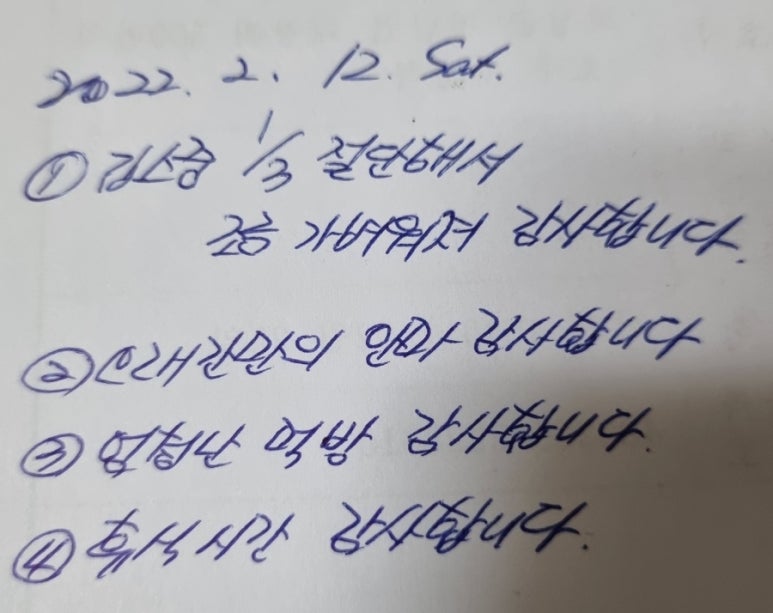 2022. 2. 12. Sat.
① 1/3 절단해서
조금 가벼워져 감사합니다.
② 오래간만의 안마 감사합니다
③ 엄청난 먹방 감사합니다.
④ 휴식시간 감사합니다.